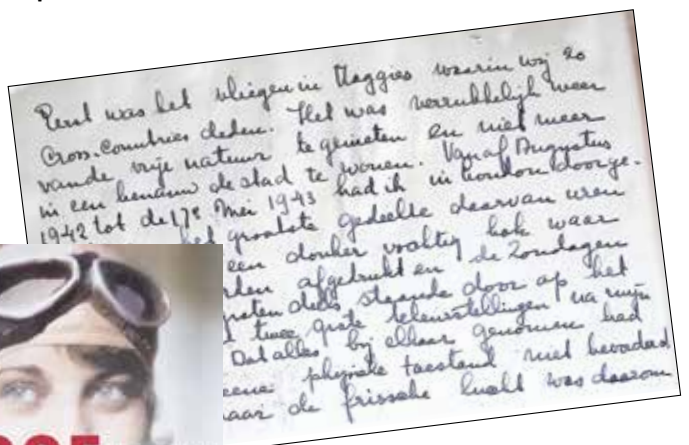 Eerst was het vliegen in Maggies waarin wij 20
Cross-Countries deden. Het was verrukkelijk weer
van de vrije natuur te genieten en niet meer
in een benauwde stad te wonen. Vanaf Augustus
1942 tot de 17e Mei 1943 had ik in London doorge-
het grootste gedeelte daarvan uren
een donker vochtig hok waar
rden afgedrukt en de Zondagen
groten deels staande door op het
twee grote teleurstellingen na mijn
Dat alles bij elkaar genomen had
physieke toestand niet bevorderd
naar de frissche lucht was daarom